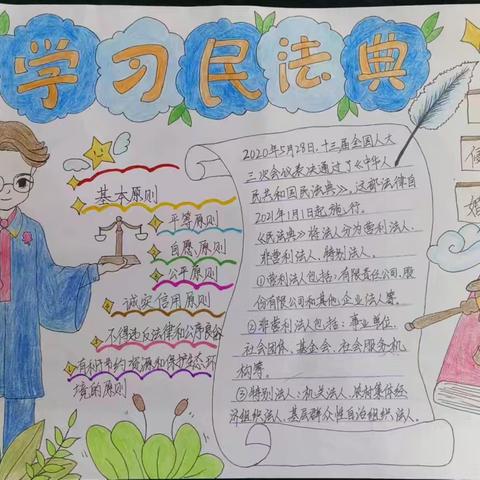 学习民法典
基本原则
平等原则
自愿原则
公平原则
诚实信用原则
不得违反法律和公序良俗
有利于节约资源和保护生态环
境的原则
2020年5月28日,十三届全国人大
三次会议表决通过了《中华人
民共和国民法典》,这部法律自
2021年1月1日起施行。
《民法典》将法人分为营利法人、
非营利法人、特别法人。
①营利法人包括:有限责任公司、股
份有限公司和其他企业法人等。
②非营利法人包括:事业单位、
社会团体、基金会、社会服务机
构等。
③特别法人:机关法人、农村集体经
济组织法人、基层群众性自治组织法人。
婚